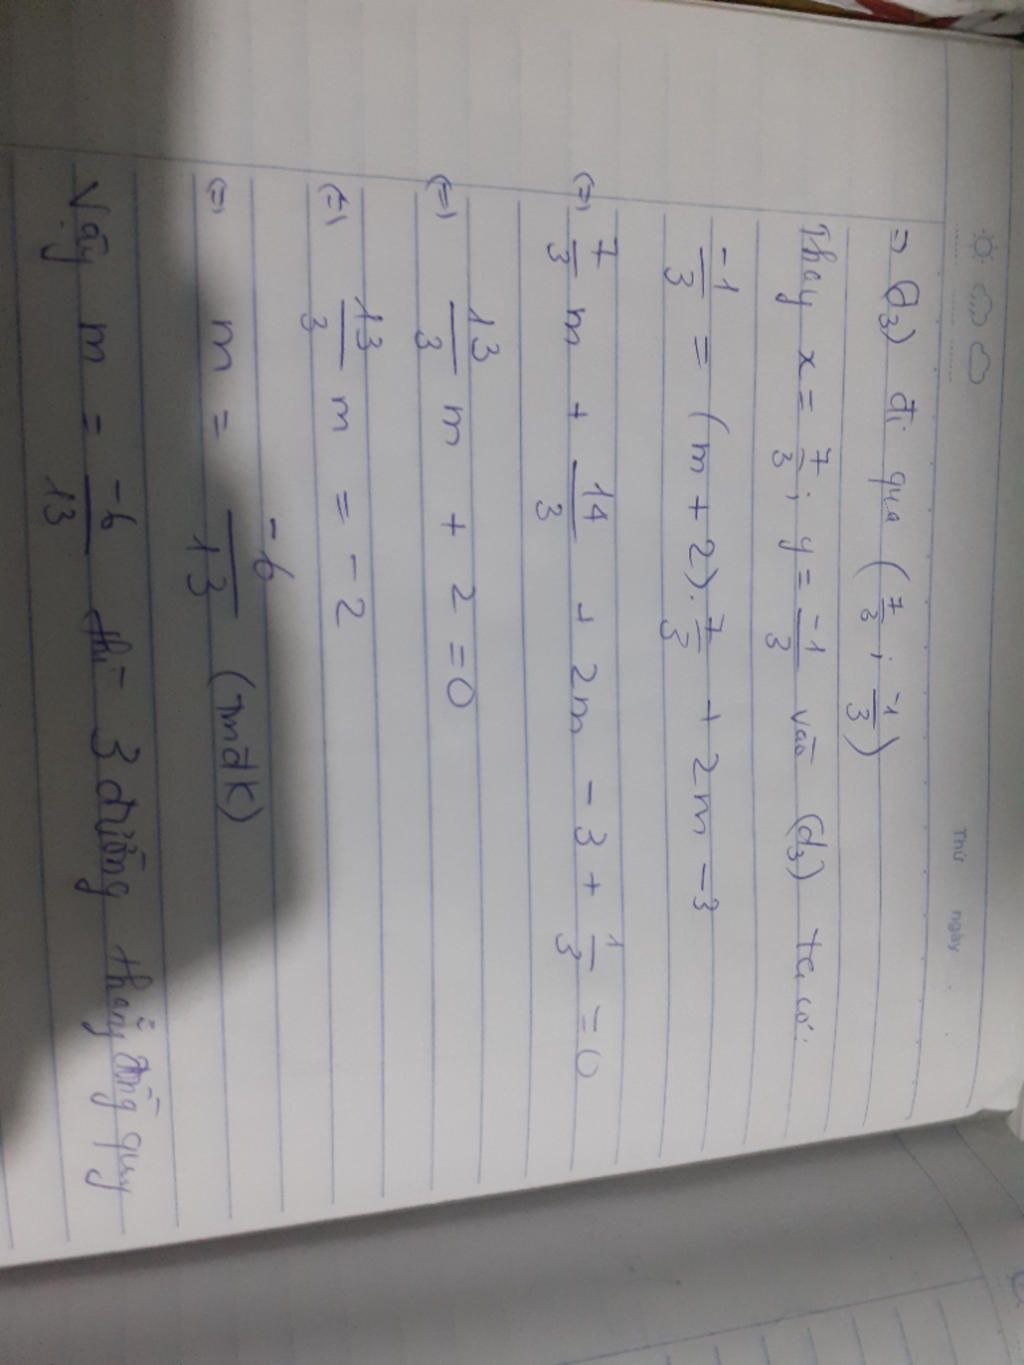 Thứ ngày
=> (d₃) đi qua (7/3 ; -1/3)
Thay x = 7/3 ; y = -1/3 vào (d₃) ta có:
-1/3 = (m + 2) . 7/3 + 2m - 3
(=) 7/3 m + 14/3 + 2m - 3 + 1/3 = 0
(=) 13/3 m + 2 = 0
(=) 13/3 m = -2
(=) m = -6/13 (TMĐK)
Vậy m = -6/13 thì 3 đường thẳng đồng quy